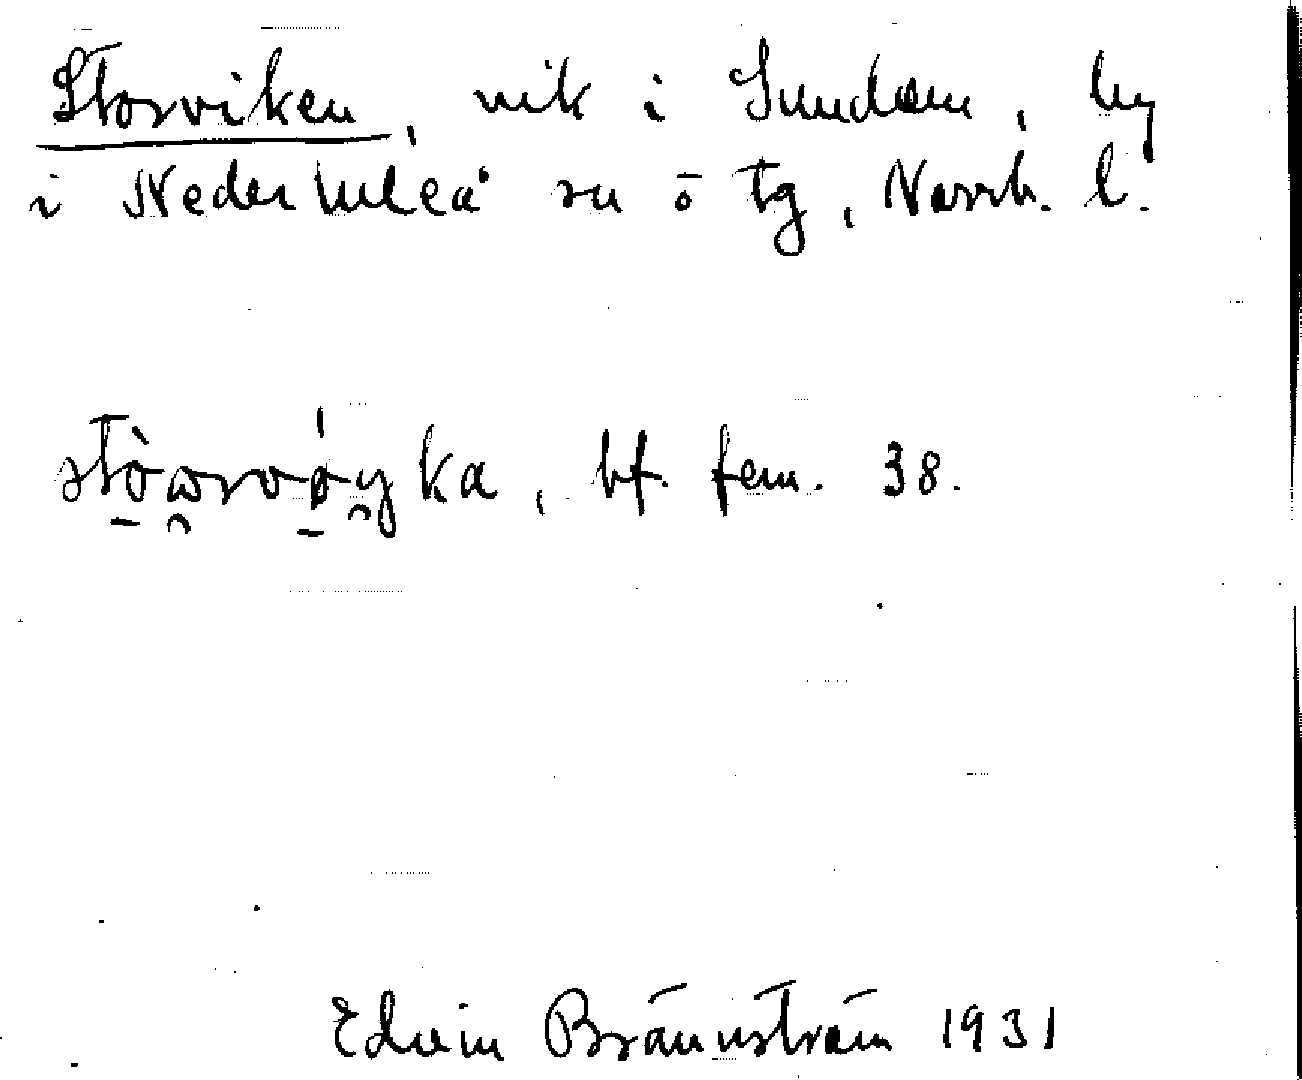 Storviken, vik i Sundom, by
i Nederluleå sn ö tg, Norrb. l.
bf. fem. 38.
Edvin Brännström 1931